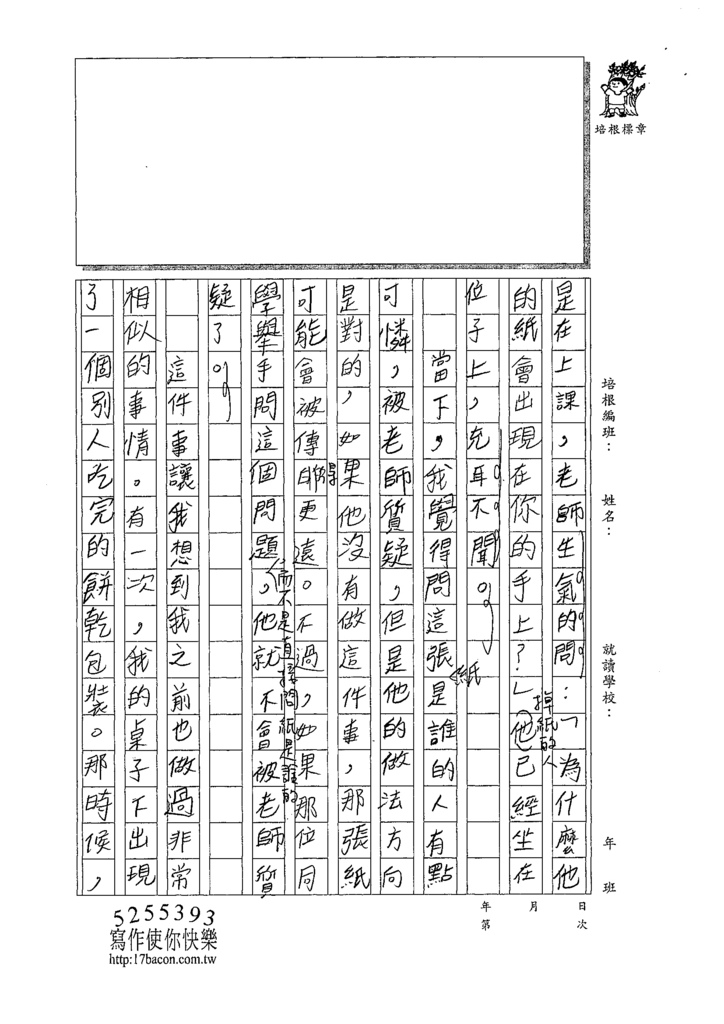 培根標章
培根編班：
姓名：
就讀學校：
年 班
年 月 日
第 次
是在上課，老師生氣的問：「為什麼他
的紙會出現在你的手上？」他已經坐在
掉紙的人
位子上，充耳不聞。
當下，我覺得問這張是誰的人有點
紙
可憐，被老師質疑，但是他的做法方向
是對的，如果他沒有做這件事，那張紙
可能會被傳得更遠。不過，如果那位同
學舉手問這個問題，他就不會被老師質
而不是直接問紙是誰的
疑了。
這件事讓我想到我之前也做過非常
相似的事情。有一次，我的桌子下出現
了一個別人吃完的餅乾包裝。那時候，
5255393
寫作使你快樂
http:17bacon.com.tw